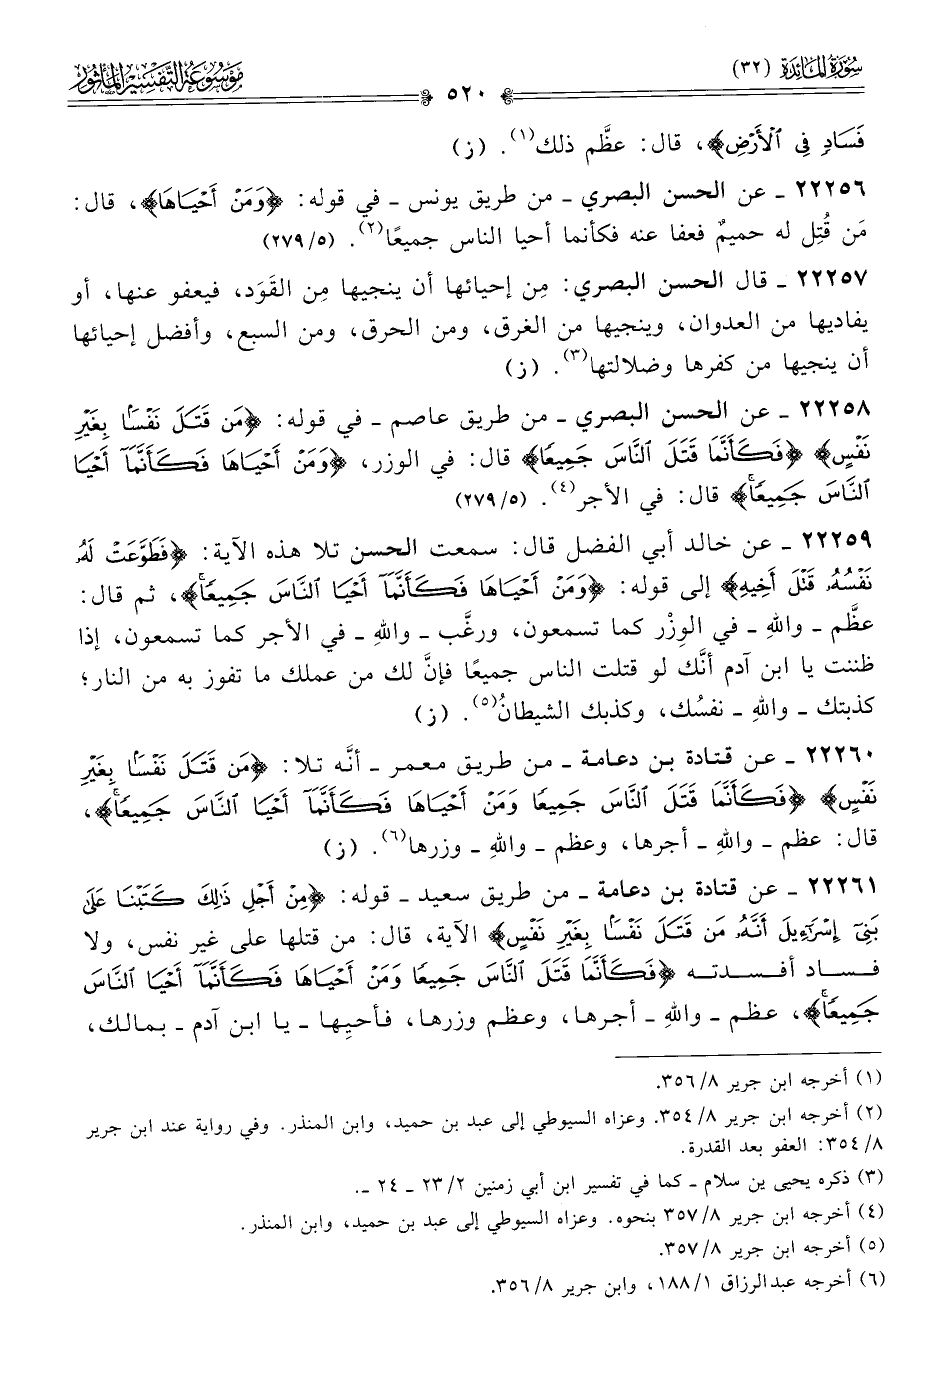 سُورَةُ المَائِدَة (٣٢)
٥٢٠
مَوْسُوعَة التَّفْسِير المَأْثُور
فَسَادٍ فِي ٱلْأَرْضِ﴾، قال: عظَّم ذلك(١). (ز)
٢٢٢٥٦ ـ عن الحسن البصري ـ من طريق يونس ـ في قوله: ﴿وَمَنْ أَحْيَاهَا﴾، قال:
مَن قُتِل له حميمٌ فعفا عنه فكأنما أحيا الناس جميعًا(٢). (٢٧٩/٥)
٢٢٢٥٧ ـ قال الحسن البصري: مِن إحيائها أن ينجيها مِن القَوَد، فيعفو عنها، أو
يفاديها من العدوان، وينجيها من الغرق، ومن الحرق، ومن السبع، وأفضل إحيائها
أن ينجيها من كفرها وضلالتها(٣). (ز)
٢٢٢٥٨ ـ عن الحسن البصري ـ من طريق عاصم ـ في قوله: ﴿مَن قَتَلَ نَفْسًۢا بِغَيْرِ
نَفْسٍ﴾ ﴿فَكَأَنَّمَا قَتَلَ ٱلنَّاسَ جَمِيعًا﴾ قال: في الوزر، ﴿وَمَنْ أَحْيَاهَا فَكَأَنَّمَآ أَحْيَا
ٱلنَّاسَ جَمِيعًاۚ﴾ قال: في الأجر(٤). (٢٧٩/٥)
٢٢٢٥٩ ـ عن خالد أبي الفضل قال: سمعت الحسن تلا هذه الآية: ﴿فَطَوَّعَتْ لَهُۥ
نَفْسُهُۥ قَتْلَ أَخِيهِ﴾ إلى قوله: ﴿وَمَنْ أَحْيَاهَا فَكَأَنَّمَآ أَحْيَا ٱلنَّاسَ جَمِيعًاۚ﴾، ثم قال:
عظَّم ـ واللهِ ـ في الوِزْر كما تسمعون، ورغَّب ـ واللهِ ـ في الأجر كما تسمعون، إذا
ظننت يا ابن آدم أنَّك لو قتلت الناس جميعًا فإنَّ لك من عملك ما تفوز به من النار؛
كذبتك ـ واللهِ ـ نفسُك، وكذبك الشيطانُ(٥). (ز)
٢٢٢٦٠ ـ عن قتادة بن دعامة ـ من طريق معمر ـ أنَّه تلا: ﴿مَن قَتَلَ نَفْسًۢا بِغَيْرِ
نَفْسٍ﴾ ﴿فَكَأَنَّمَا قَتَلَ ٱلنَّاسَ جَمِيعًا وَمَنْ أَحْيَاهَا فَكَأَنَّمَآ أَحْيَا ٱلنَّاسَ جَمِيعًاۚ﴾،
قال: عظم ـ واللهِ ـ أجرها، وعظم ـ واللهِ ـ وزرها(٦). (ز)
٢٢٢٦١ ـ عن قتادة بن دعامة ـ من طريق سعيد ـ قوله: ﴿مِنْ أَجْلِ ذَٰلِكَ كَتَبْنَا عَلَىٰ
بَنِيٓ إِسْرَٰٓءِيلَ أَنَّهُۥ مَن قَتَلَ نَفْسًۢا بِغَيْرِ نَفْسٍ﴾ الآية، قال: من قتلها على غير نفس، ولا
فساد أفسدته ﴿فَكَأَنَّمَا قَتَلَ ٱلنَّاسَ جَمِيعًا وَمَنْ أَحْيَاهَا فَكَأَنَّمَآ أَحْيَا ٱلنَّاسَ
جَمِيعًاۚ﴾، عظم ـ واللهِ ـ أجرها، وعظم وزرها، فأحيها ـ يا ابن آدم ـ بمالك،
(١) أخرجه ابن جرير ٣٥٦/٨.
(٢) أخرجه ابن جرير ٣٥٤/٨. وعزاه السيوطي إلى عبد بن حميد، وابن المنذر. وفي رواية عند ابن جرير
٣٥٤/٨: العفو بعد القدرة.
(٣) ذكره يحيى بن سلام ـ كما في تفسير ابن أبي زمنين ٢٣/٢ ـ ٢٤ ـ.
(٤) أخرجه ابن جرير ٣٥٧/٨ بنحوه. وعزاه السيوطي إلى عبد بن حميد، وابن المنذر.
(٥) أخرجه ابن جرير ٣٥٧/٨.
(٦) أخرجه عبدالرزاق ١٨٨/١، وابن جرير ٣٥٦/٨.